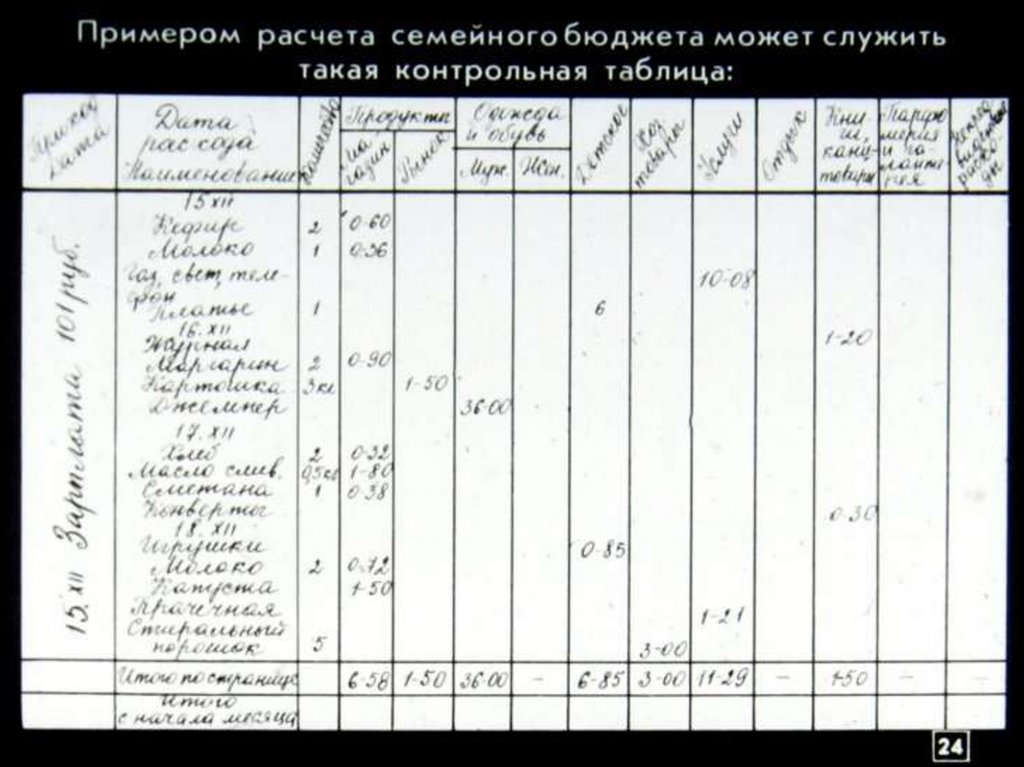 Примером расчета семейного бюджета может служить
такая контрольная таблица:
Приход Дата
Дата расхода Наименование
Количество
Продукты
Магазин
Рынок
Одежда и обувь
Муж.
Жен.
Детское
Хоз. товары
Услуги
Отдых
Книги, канц-товары
Парфюмерия и галантерея
Непредвиденные расходы
15. XII Зарплата 101 руб.
15 XII
Кефир 2 0-60
Молоко 1 0-36
Газ, свет, теле-
фон 10-08
Платье 1 6
16. XII
Журнал 1-20
Маргарин 2 0-90
Картошка 3кг 1-50
Джемпер 36-00
17. XII
Хлеб 2 0-32
Масло слив. 0,5кг 1-80
Сметана 1 0-38
Конверты 0-30
18. XII
Игрушки 0-85
Молоко 2 0-72
Капуста 1-50
Прачечная 1-21
Стиральный
порошок 5 3-00
Итого по странице 6-58 1-50 36-00 — 6-85 3-00 11-29 — 1-50 — —
Итого
с начала месяца
24